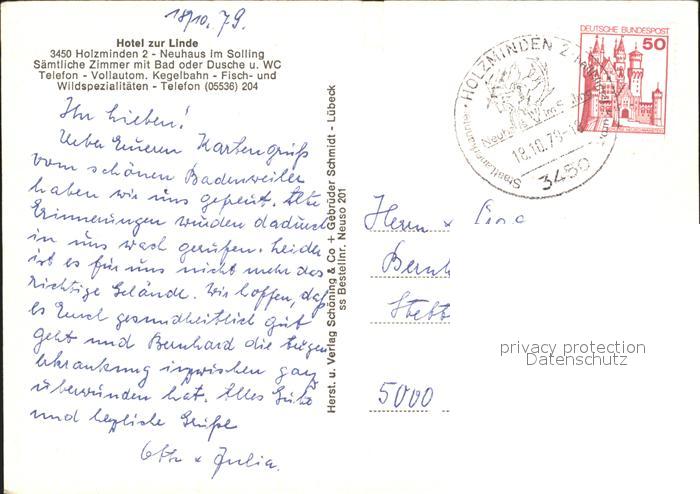 18/10.79.
Hotel zur Linde
3450 Holzminden 2 - Neuhaus im Solling
Sämtliche Zimmer mit Bad oder Dusche u. WC
Telefon - Vollautom. Kegelbahn - Fisch- und
Wildspezialitäten - Telefon (05536) 204
Ihr Lieben!
Ueber Eueren Kartengruß
vom schönen Badenweiler
haben wir uns gefreut. Alte
Erinnerungen wurden dadurch
in uns wach gerufen. Leider
ist es für uns nicht mehr das
richtige Gelände. Wir hoffen, daß
es Euch gesundheitlich gut
geht und Bernhard die Augen
erkrankung inzwischen ganz
überwunden hat. Alles Gute
und herzliche Grüße
Otto + Julia.
Herst. u. Verlag Schöning & Co + Gebrüder Schmidt - Lübeck
ss Bestellnr. Neuso 201
DEUTSCHE BUNDESPOST
50
HOLZMINDEN 2
Neuhaus im Solling
18.10.79-18
3450
Staatl. anerkannter
Herrn +
Bernh
Stett
5000
privacy protection
Datenschutz